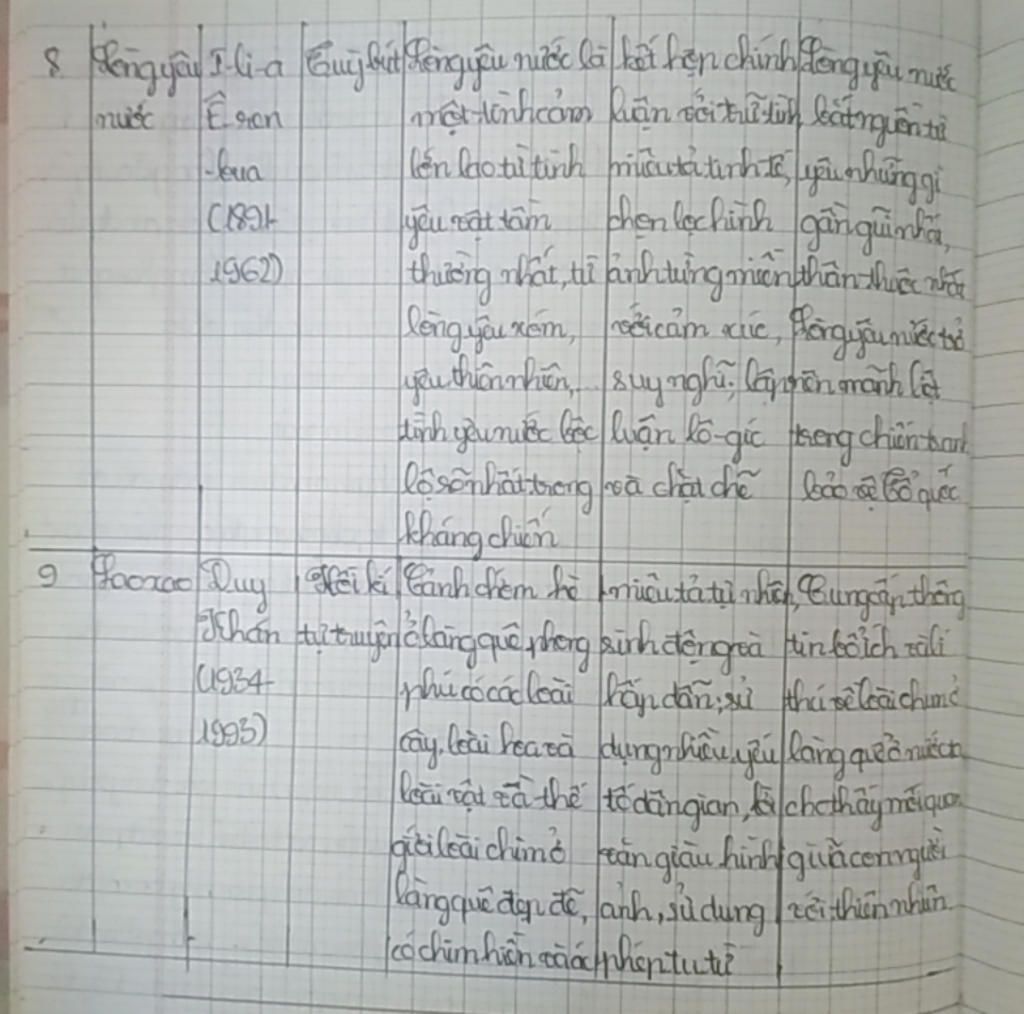 8 Lòng yêu I-li-a Tuỳ bút Lòng yêu nước là kết hợp chính Lòng yêu nước
nước Ê ren một tình cảm luận với trữ tình bắt nguồn từ
-bua lớn lao từ tình miêu tả tinh tế, yêu những gì
(1891- yêu vật tầm chọn lọc hình gần gũi nhất,
1962) thường nhất, từ ảnh từng miền thân thuộc nhất
lòng yêu xóm, với cảm xúc, Lòng yêu nước trở
yêu thiên nhiên, suy nghĩ; lập nên mãnh liệt
tình yêu nước bộc luận lô-gíc trong chiến tranh
lộ rõ nhất trong và chặt chẽ bảo vệ Tổ quốc
kháng chiến
9 Lao xao Duy Hồi kí Cảnh chớm hè miêu tả tự nhiên, Cung cấp thông
Khán tự truyện ở làng quê phong sinh động và tin bổ ích và lí
(1934- phú có các loài hấp dẫn; sử thú về loài chim ở
1993) cây, loài hoa và dụng nhiều yếu làng quê ở nước ta
loài vật và thế tố dân gian, lời cho thấy mối quan
giới loài chim ở văn giàu hình giữa con người
làng quê đẹp đẽ, ảnh, sử dụng với thiên nhiên
có chim hiền và ác phép tu từ